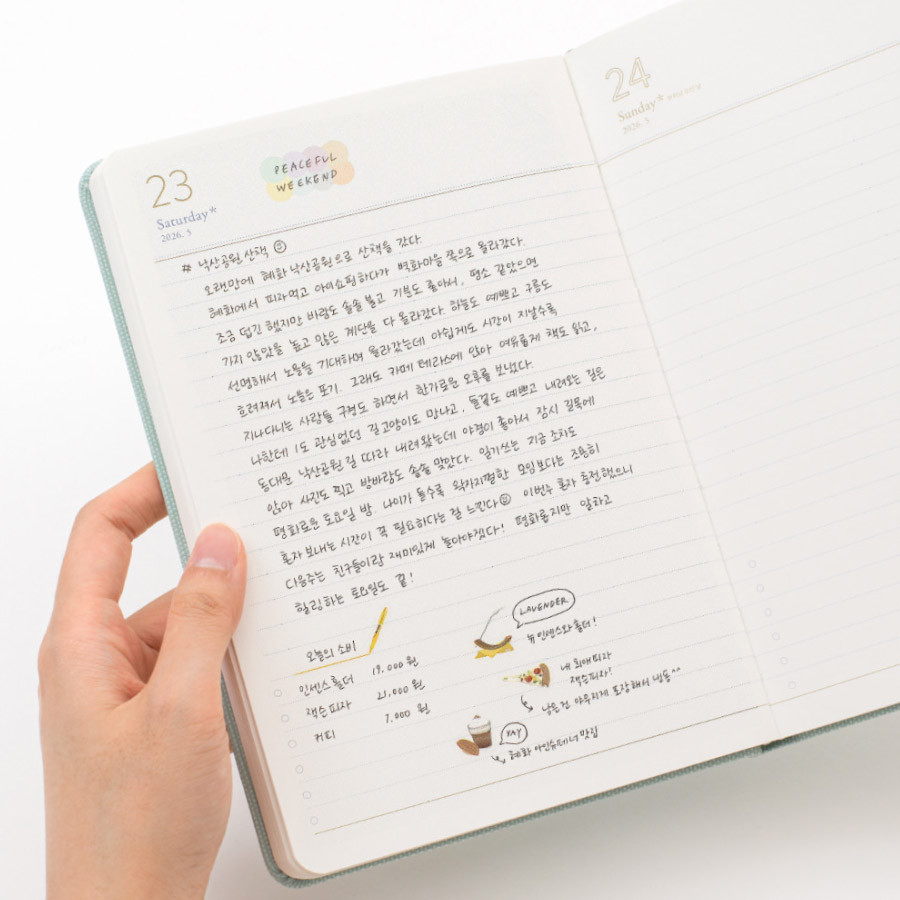 23
Saturday*
2026. 5
PEACEFUL
WEEKEND
# 낙산공원 산책
오랜만에 혜화 낙산공원으로 산책을 갔다.
혜화에서 피자먹고 아이쇼핑하다가 벽화마을 쪽으로 올라갔다.
조금 덥긴 했지만 바람도 솔솔 불고 기분도 좋아서, 평소 같았으면
가지 않았을 높고 많은 계단을 다 올라갔다. 하늘도 예쁘고 구름도
선명해서 노을을 기대하며 올라갔는데 아쉽게도 시간이 지날수록
흐려져서 노을은 포기. 그래도 카페 테라스에 앉아 여유롭게 책도 읽고,
지나다니는 사람들 구경도 하면서 한가로운 오후를 보냈다.
나한테 1도 관심없던 길고양이도 만나고, 들꽃도 예쁘고 내려오는 길은
동대문 낙산공원 길 따라 내려왔는데 야경이 좋아서 잠시 길목에
앉아 사진도 찍고 밤바람도 솔솔 맞았다. 일기쓰는 지금 조차도
평화로운 토요일 밤. 나이가 들수록 왁자지껄한 모임보다는 조용히
혼자 보내는 시간이 꼭 필요하다는 걸 느낀다 이번주 혼자 충전했으니
다음주는 친구들이랑 재미있게 놀아야겠다! 평화롭지만 알차고
힐링하는 토요일도 끝!
오늘의 소비
인센스홀더 19,000 원
잭슨피자 21,000 원
커피 7,000 원
LAVENDER
뉴 인센스와 홀더!
내 최애피자
잭슨피자!
남은건 야무지게 포장해서 냉동^^
YAY
혜화 아인슈페너 맛집
24
Sunday*
2026. 5